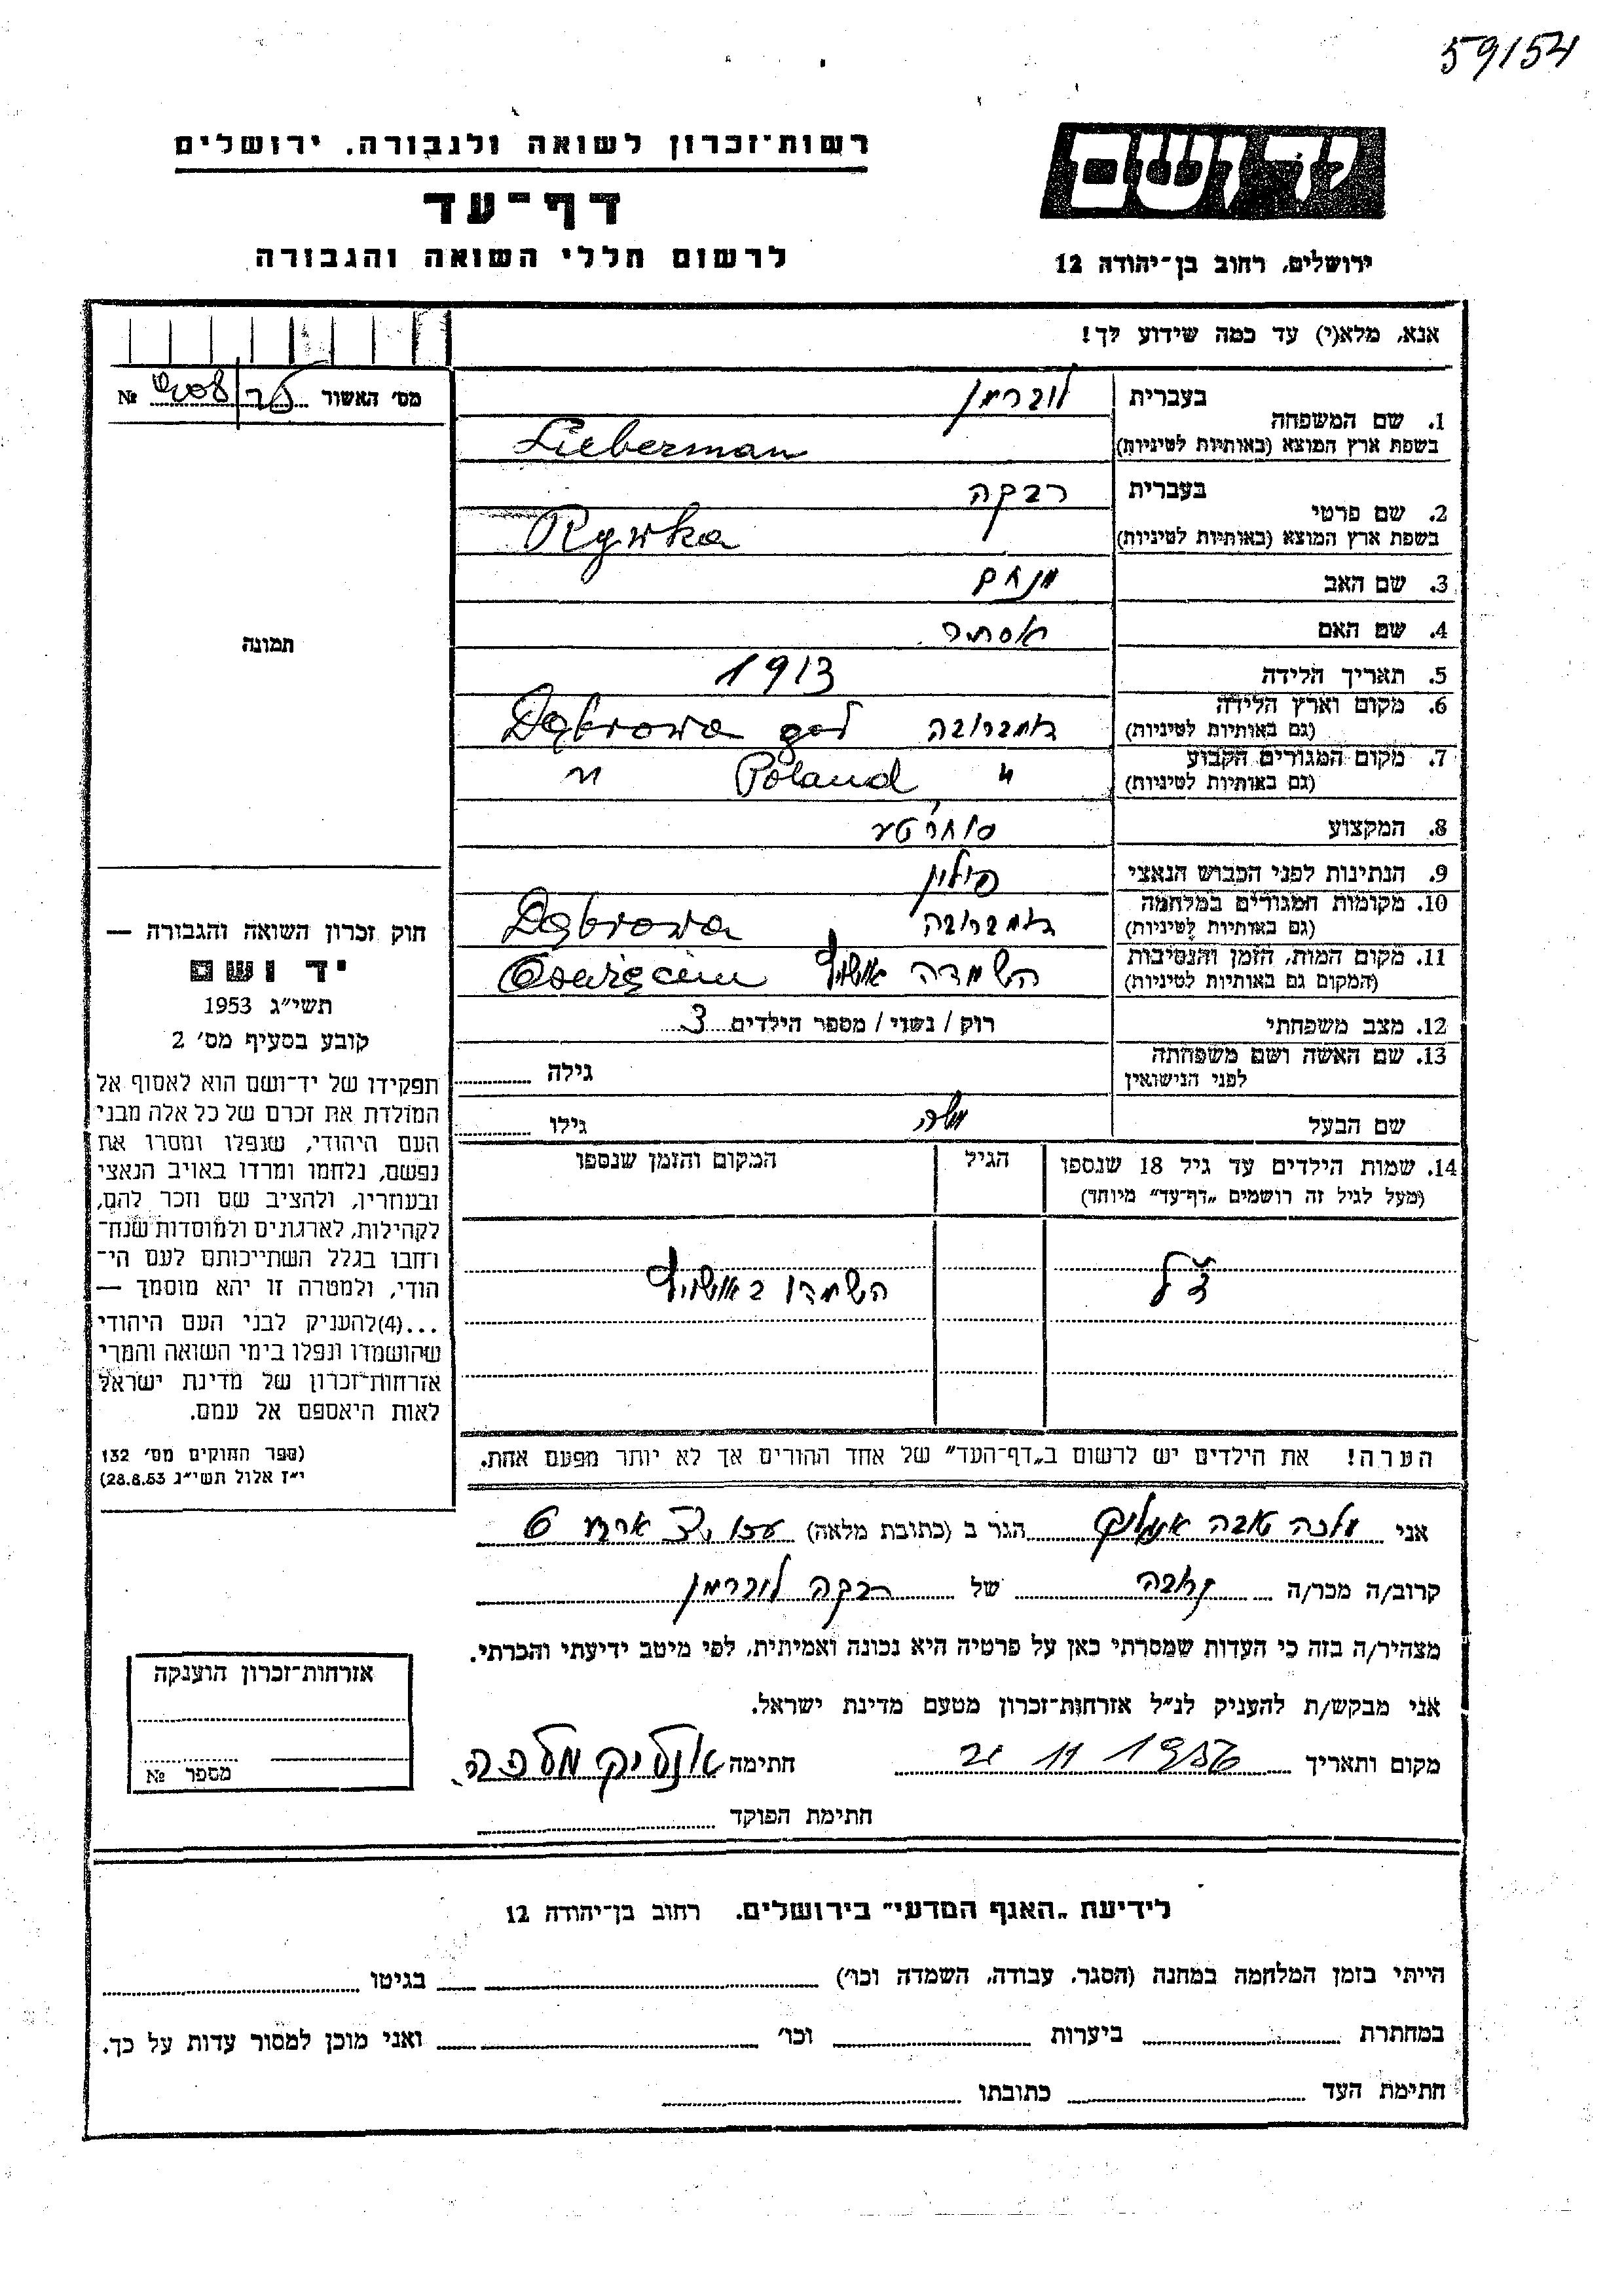 59154
רשות־זכרון לשואה ולגבורה. ירושלים
דף־עד
לרשום חללי השואה והגבורה
יד ושם
ירושלים, רחוב בן־יהודה 12
אנא, מלא(י) עד כמה שידוע לך!
מס׳ האשור №
1. שם המשפחה
בעברית ליברמן
בשפת ארץ המוצא (באותיות לטיניות) Lieberman
2. שם פרטי
בעברית רבקה
בשפת ארץ המוצא (באותיות לטיניות) Rywka
3. שם האב מנחם
4. שם האם אסתר
5. תאריך הלידה 1913
6. מקום וארץ הלידה
(גם באותיות לטיניות) דמברובה Dąbrowa
7. מקום המגורים הקבוע
(גם באותיות לטיניות) " Poland "
8. המקצוע
9. הנתינות לפני הכבוש הנאצי פולין
10. מקומות המגורים במלחמה
(גם באותיות לטיניות) דמברובה Dąbrowa
11. מקום המות, הזמן והנסיבות
(המקום גם באותיות לטיניות) השמדה אושויץ Oswięcim
12. מצב משפחתי רוק / נשוי / מספר הילדים 3
13. שם האשה ושם משפחתה
לפני הנישואין
גילה
שם הבעל משה גילו
14. שמות הילדים עד גיל 18 שנספו
(מעל לגיל זה רושמים „דף־עד" מיוחד)
הגיל
המקום והזמן שנספו
השמדו באושויץ
הערה! את הילדים יש לרשום ב„דף־העד" של אחד ההורים אך לא יותר מפעם אחת.
תמונה
חוק זכרון השואה והגבורה —
יד ושם
תשי״ג 1953
קובע בסעיף מס׳ 2
תפקידו של יד־ושם הוא לאסוף אל
המולדת את זכרם של כל אלה מבני
העם היהודי, שנפלו ומסרו את
נפשם, נלחמו ומרדו באויב הנאצי
ובעוזריו, ולהציב שם וזכר להם,
לקהילות, לארגונים ולמוסדות שנח־
רחבו בגלל השתייכותם לעם הי־
הודי, ולמטרה זו יהא מוסמך —
...(4)להעניק לבני העם היהודי
שהושמדו ונפלו בימי השואה והמרי
אזרחות־זכרון של מדינת ישראל
לאות היאספם אל עמם.
(ספר החוקים מס׳ 132
י״ז אלול תשי״ג 28.8.53)
אני מלכה הגר ב (כתובת מלאה) 6
קרוב/ה מכר/ה של רבקה ליברמן
מצהיר/ה בזה כי העדות שמסרתי כאן על פרטיה היא נכונה ואמיתית, לפי מיטב ידיעתי והכרתי.
אני מבקש/ת להעניק לנ״ל אזרחות־זכרון מטעם מדינת ישראל.
מקום ותאריך 21 11 1956 חתימה מלכה
חתימת הפוקד
אזרחות־זכרון הוענקה
מספר №
לידיעת „האגף המדעי" בירושלים. רחוב בן־יהודה 12
הייתי בזמן המלחמה במחנה (הסגר, עבודה, השמדה וכו׳) בגיטו
במחתרת ביערות וכו׳ ואני מוכן למסור עדות על כך.
חתימת העד כתובתו